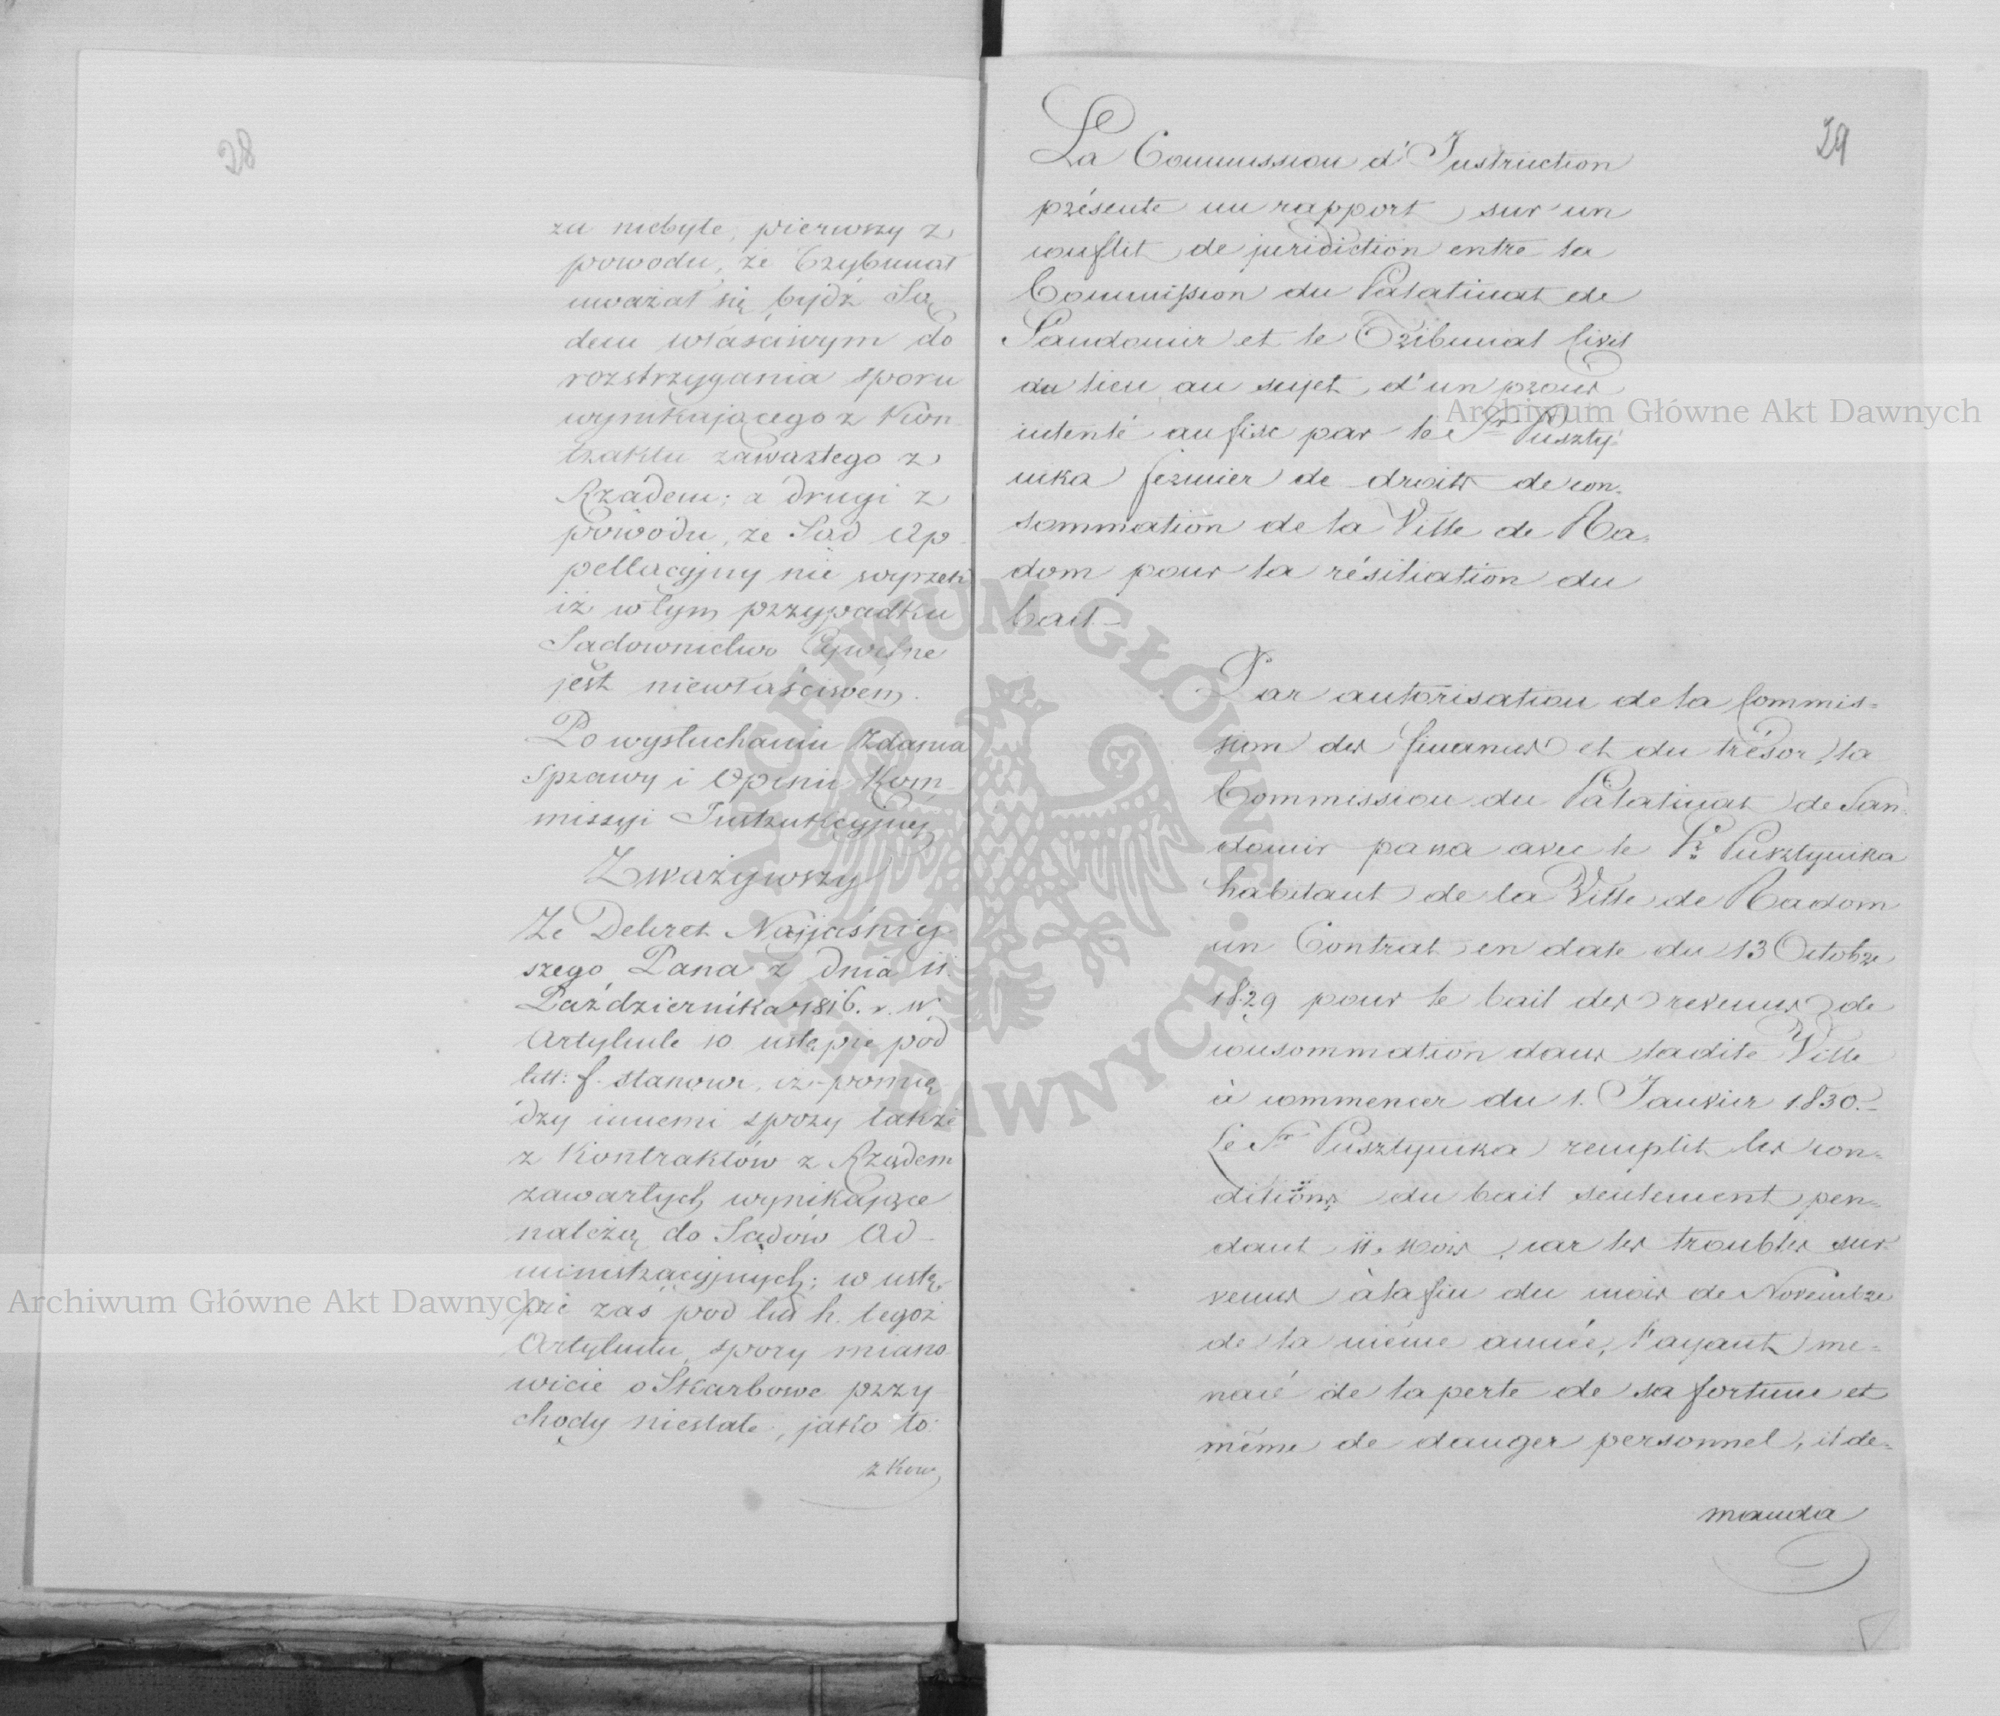 28
za niebyłe, pierwszy z
powodu, że Trybunał
uważał się bydź Są
dem właściwym do
rozstrzygania sporu
wynikającego z Kon
traktu zawartego z
Rządem; a drugi z
powodu, że Sąd Ap
pellacyjny nie wyrzekł
iż w tym przypadku
Sądownictwo Cywilne
jest niewłaściwém.
Po wysłuchaniu Zdania
Sprawy i Opinii Kom
missyi Instrukcyjnéj
Zważywszy
Że Dekret Najjaśniéj
szego Pana z dnia 11.
Października 1816. r. w
Artykule 10 ustępie pod
litt: f. stanowi, iż pomię
dzy innemi spory także
z Kontraktów z Rządem
zawartych wynikające
należą do Sądów Ad-
ministracyjnych; w ustę-
pie zaś pod lit h. tegoż
Artykułu, spory miano
wicie o Skarbowe przy
chody niestałe, jako to:
z Kow
29
La Commission d'Instruction
présente un rapport, sur un
conflit de juridiction entre la
Commission du Palatinat de
Sandomir et le Tribunal Civil
du lieu, au sujet d'un procès
intenté au fisc par le Sr Puszty-
nika fermier de droits de con-
sommation de la Ville de Ra-
dom pour la résiliation du
bail.
Par autorisation de la Commis-
sion des finances et du trésor, la
Commission du Palatinat de San-
domir passa avec le Sr Pusztynika
habitant de la Ville de Radom
un Contrat en date du 13 Octobre
1829 pour le bail des revenus de
consommation dans ladite Ville
à commencer du 1. Janvier 1830.-
Le Sr Pusztynika remplit les con-
ditions du bail seulement pen-
dant 11. mois, car les troubles sur-
venus à la fin du mois de Novembre
de la même année, l'ayant me-
nacé de la perte de sa fortune et
même de danger personnel, il de-
manda
Archiwum Główne Akt Dawnych
Archiwum Główne Akt Dawnych
ARCHIWUM GŁÓWNE AKT DAWNYCH